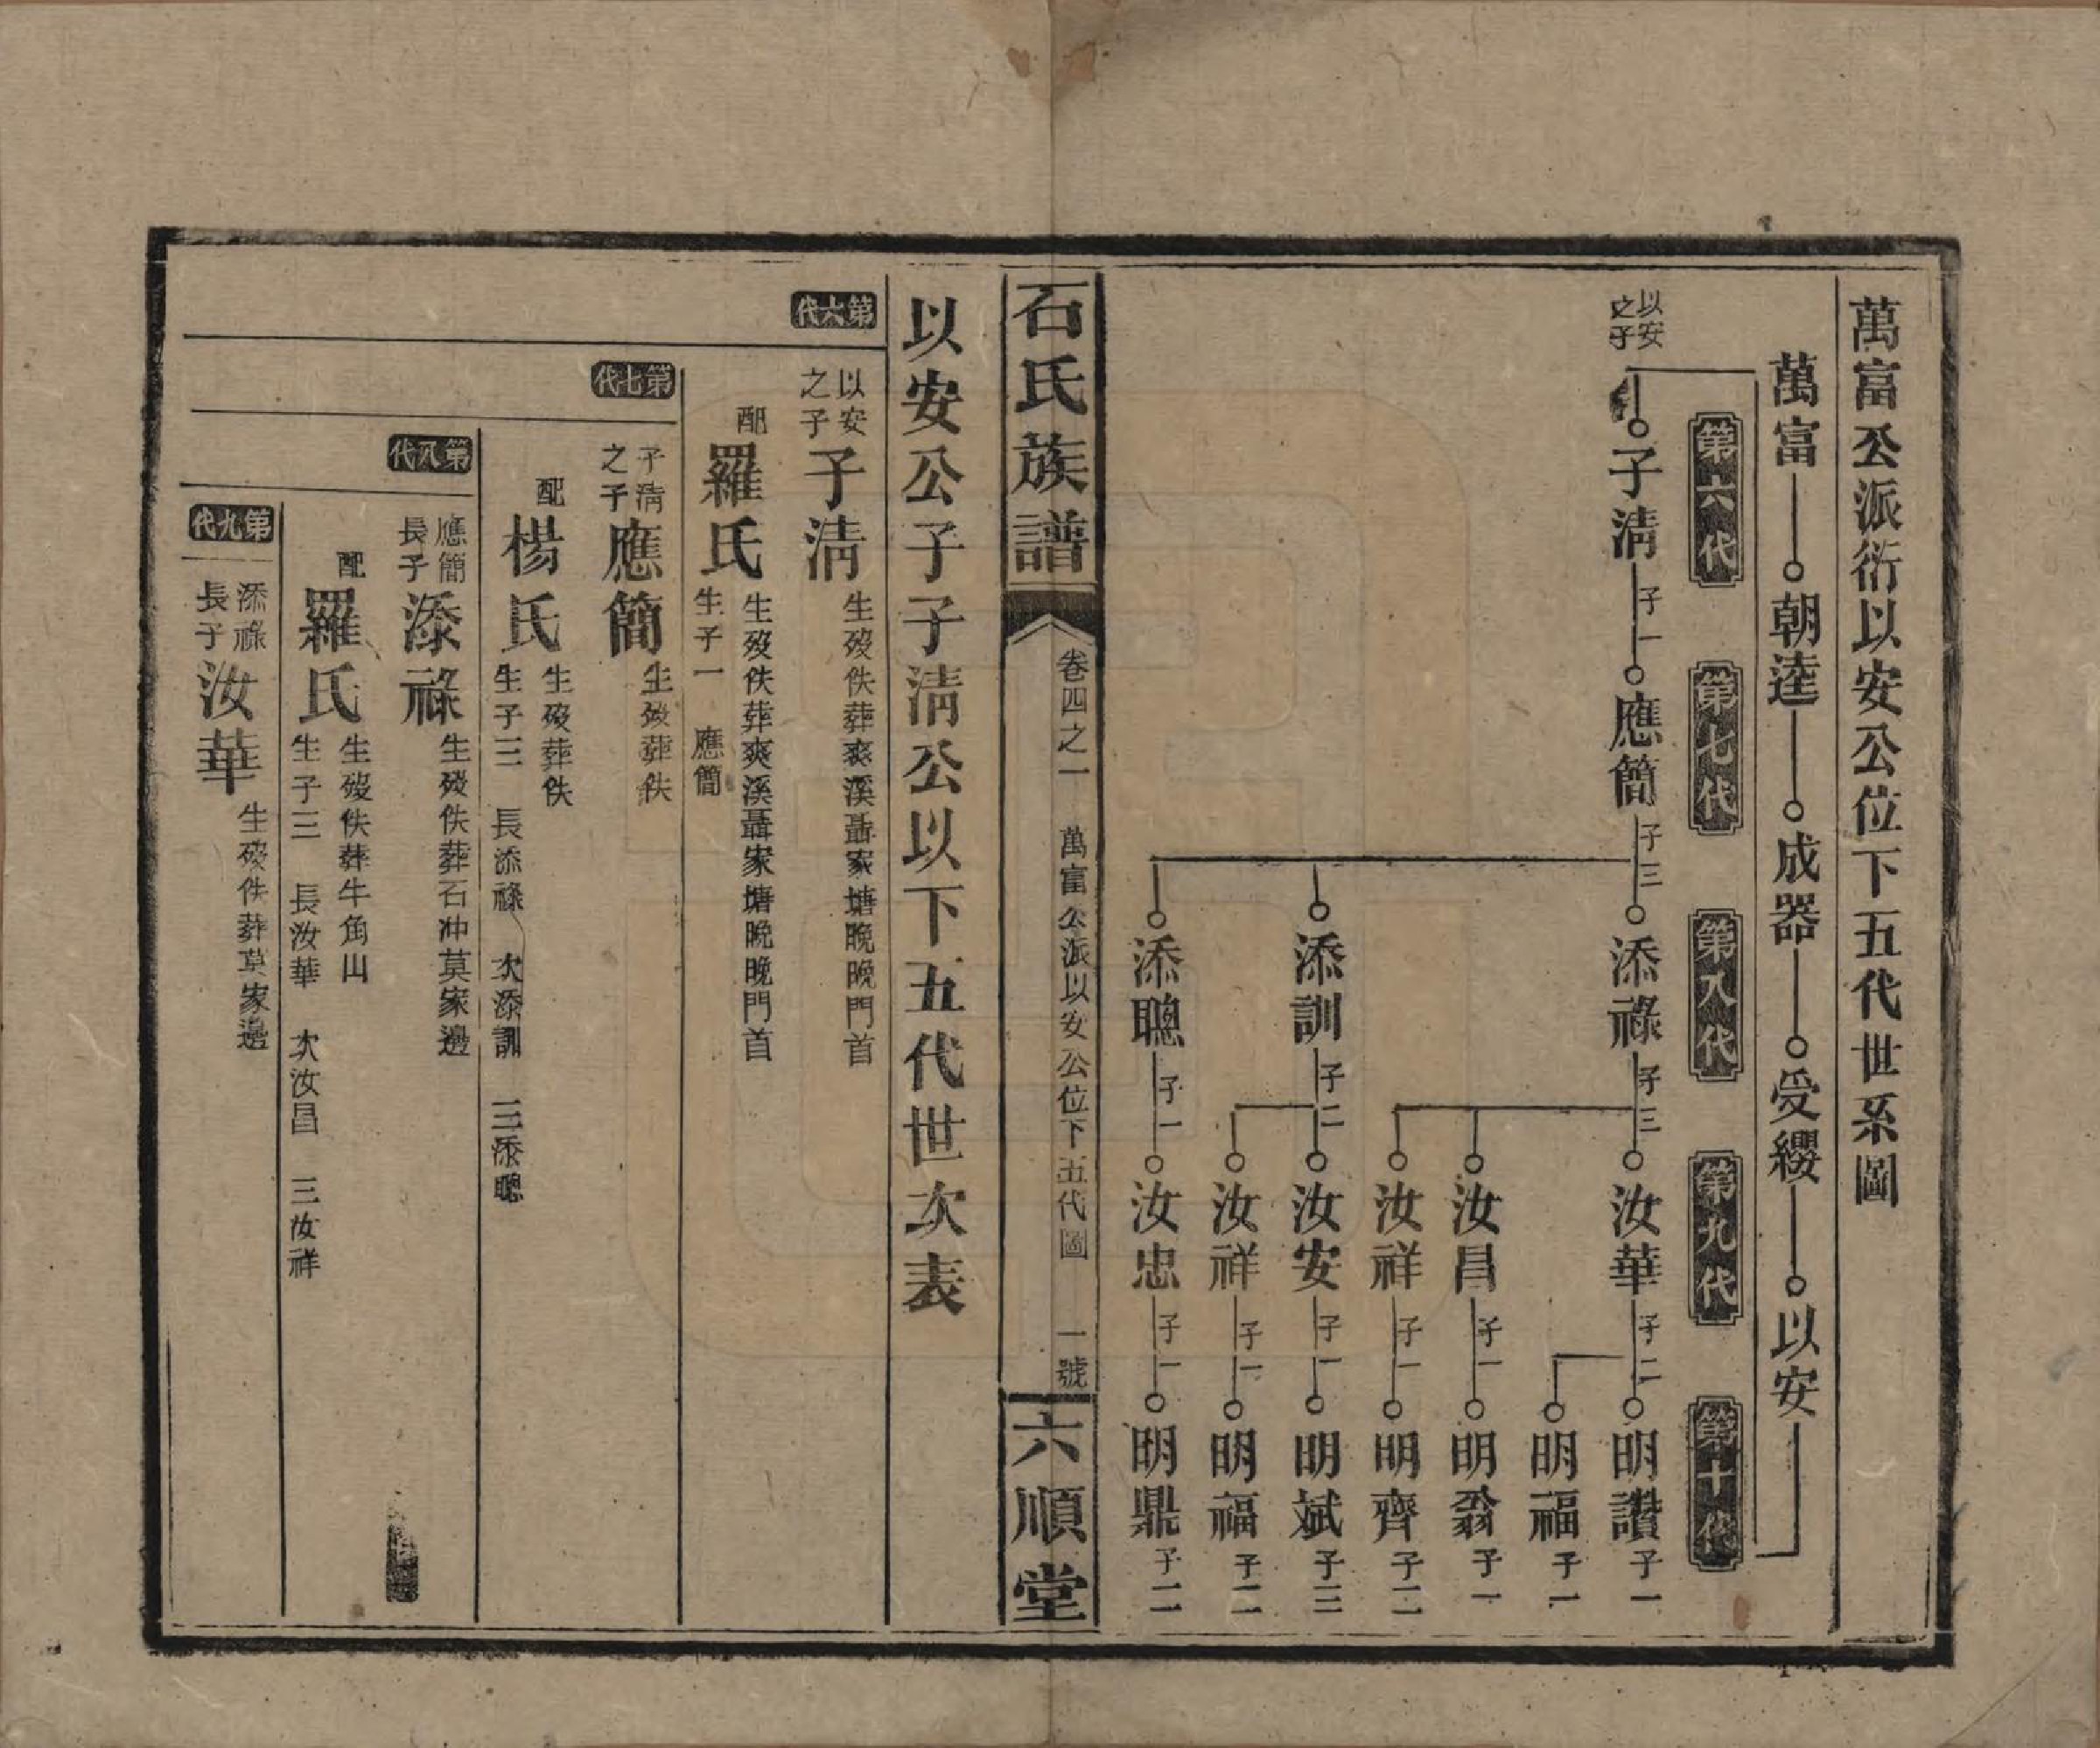 萬富公派衍以安公位下五代世系圖
萬富 朝逵 成器 受纓 以安
第六代 第七代 第八代 第九代 第十代
以安之子
子淸 子一 應簡 子三 添祿 子三 汝華 子二 明讚 子一
明福 子一
汝昌 子一 明翁 子一
汝祥 子一 明齊 子二
添訓 子二 汝安 子一 明斌 子三
汝祥 子一 明福 子二
添聰 子一 汝忠 子一 明鼎 子二
石氏族譜 卷四之一 萬富公派以安公位下五代圖 一號 六順堂
以安公子子淸公以下五代世次表
第六代
以安之子 子淸 生歿佚葬爽溪聶家塘晚晚門首
配 羅氏 生歿佚葬爽溪聶家塘晚晚門首
生子一 應簡
第七代
子淸之子 應簡 生歿葬佚
配 楊氏 生歿葬佚
生子三 長添祿 次添訓 三添聰
第八代
應簡長子 添祿 生歿佚葬石冲莫家邊
配 羅氏 生歿佚葬牛角山
生子三 長汝華 次汝昌 三汝祥
第九代
添祿長子 汝華 生歿佚葬莫家邊